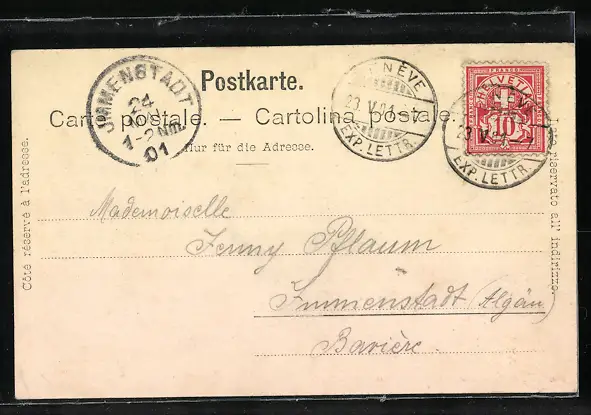 Postkarte.
Carte postale. — Cartolina postale.
Nur für die Adresse.
Côte réservé à l'adresse.
Lato riservato all' indirizzo.
IMMENSTADT
24
1-2 Nm.
01
GENÈVE
23.V.01.-7
EXP. LETTR.
FRANCO
HELVETIA
10
GENÈVE
23.V.01.-7
EXP. LETTR.
Mademoiselle
Jenny Pflaum
Immenstadt (Algäu)
Bavière.